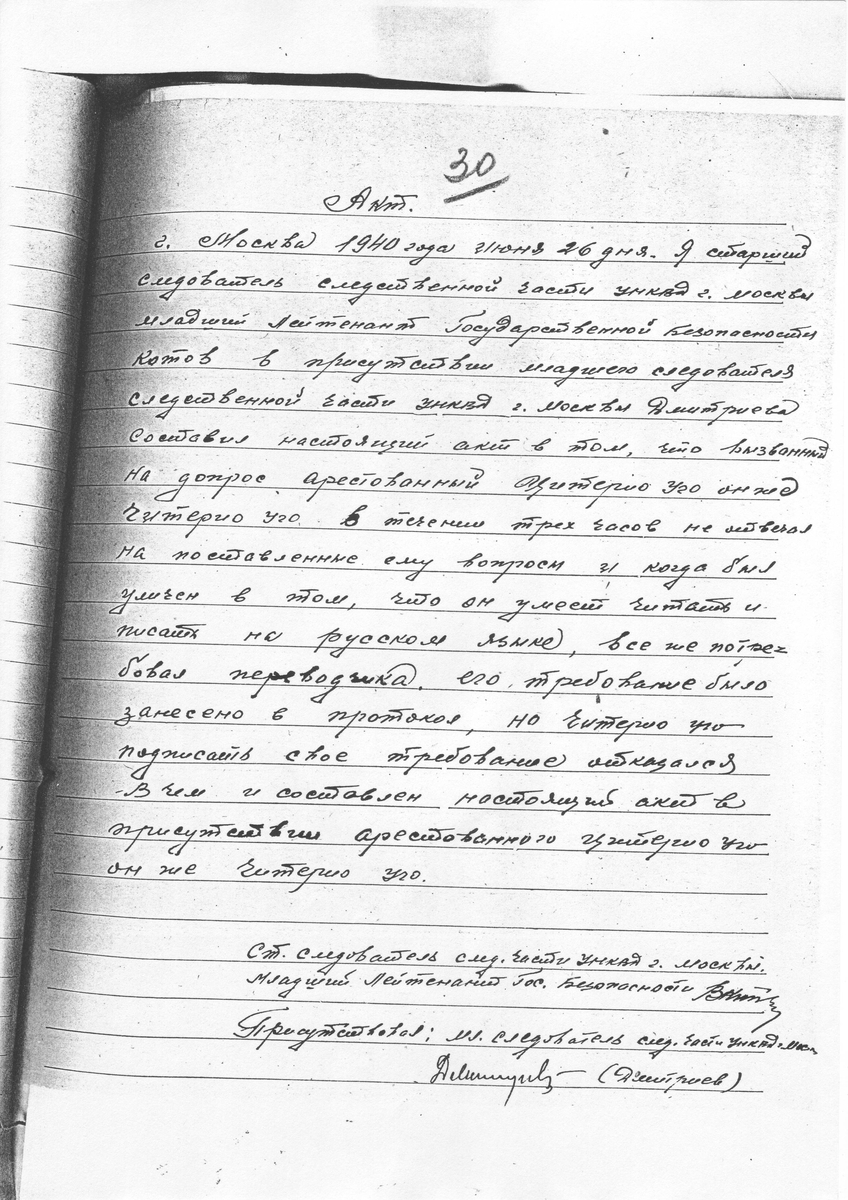 30
Акт.
г. Москва 1940 года июня 26 дня. Я старший
следователь следственной части УНКВД г. Москвы
младший Лейтенант Государственной Безопасности
Котов в присутствии младшего следователя
следственной части УНКВД г. Москвы Дмитриева
составил настоящий акт в том, что вызванный
на допрос арестованный Цитерио Уго он же
Читерио Уго в течении трех часов не отвечал
на поставленные ему вопросы и когда был
уличен в том, что он умеет читать и
писать на русском языке, все же потре-
бовал переводчика. его требование было
занесено в протокол, но Читерио Уго
подписать свое требование отказался
В чем и составлен настоящий акт в
присутствии арестованного Цитерио Уго
он же Читерио Уго.
Ст. следователь след. части УНКВД г. Москвы.
Младший Лейтенант Гос. Безопасности
Присутствовал: мл. следователь след. части УНКВД г. Моск
(Дмитриев)